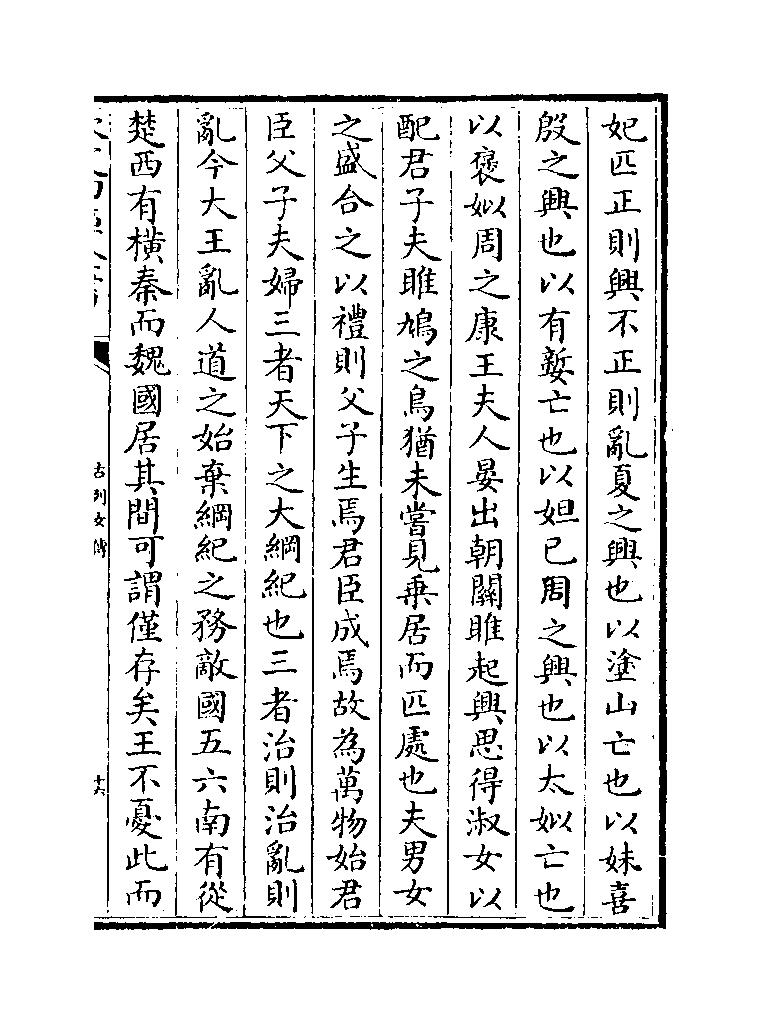 妃匹正則興不正則亂夏之興也以塗山亡也以妹喜
殷之興也以有㜪亡也以妲已周之興也以太姒亡也
以褒姒周之康王夫人晏出朝關雎起興思得淑女以
配君子夫雎鳩之鳥猶未嘗見乗居而匹處也夫男女
之盛合之以禮則父子生焉君臣成焉故為萬物始君
臣父子夫婦三者天下之大綱紀也三者治則治亂則
亂今大王亂人道之始棄綱紀之務敵國五六南有從
楚西有橫秦而魏國居其間可謂僅存矣王不憂此而
古列女傳
十六